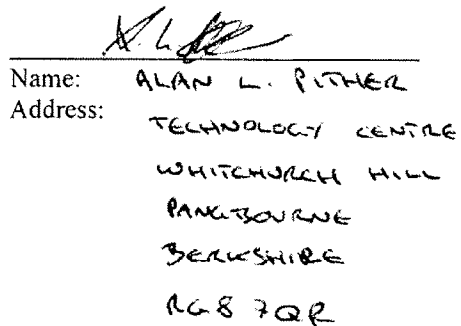 Name: ALAN L. PITHER
Address:
TECHNOLOGY CENTRE
WHITCHURCH HILL
PANGBOURNE
BERKSHIRE
RG8 7QR